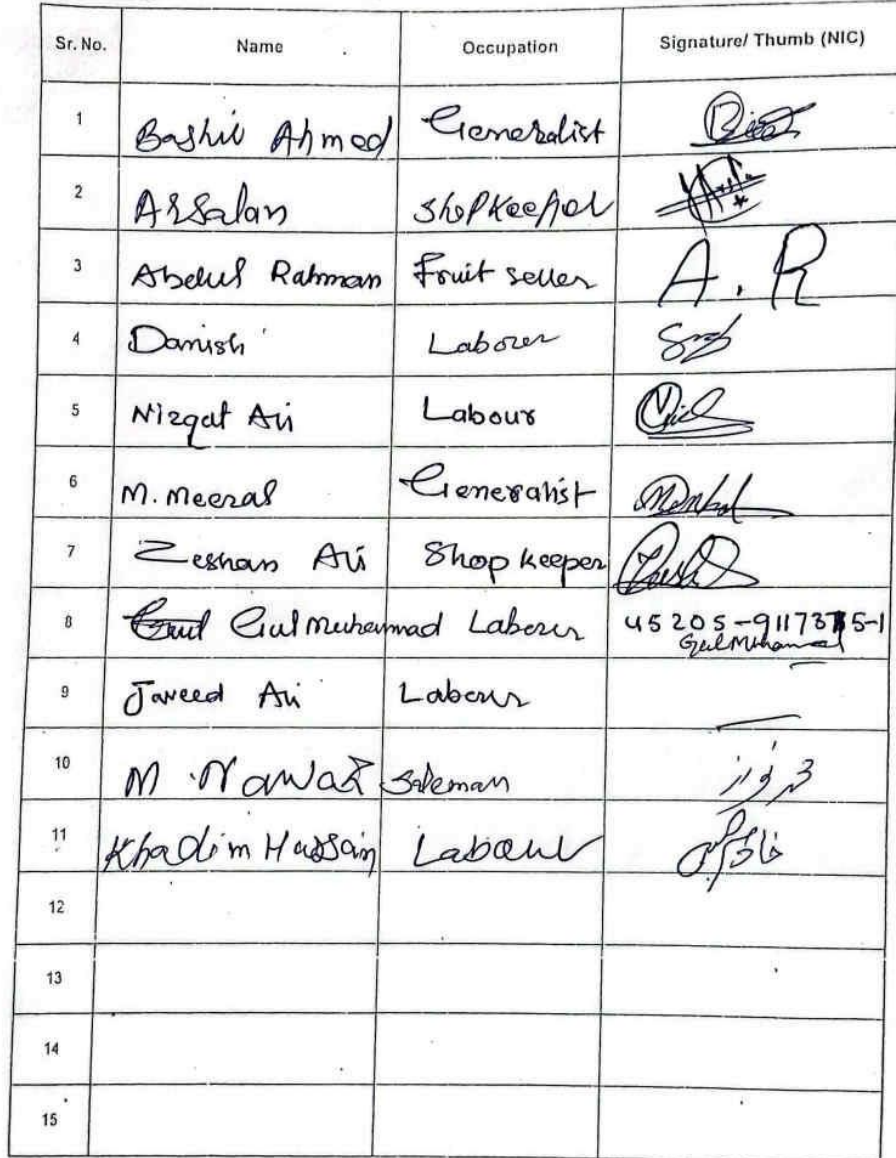 Sr. No. Name Occupation Signature/ Thumb (NIC)
1 Bashir Ahmed Generalist
2 Arsalan Shopkeeper
3 Abdul Rahman Fruit seller A. R
4 Danish Laborer
5 Nizqat Ali Labour
6 M. Meeral Generalist
7 Zeshan Ali Shop keeper
8 Gul Muhammad Laborer 45205-9117375-1
Gul Muhammad
9 Javeed Ali Labour
10 M. Nawaz Saleman محمد نواز
11 Khadim Hussain Labour
12
13
14
15